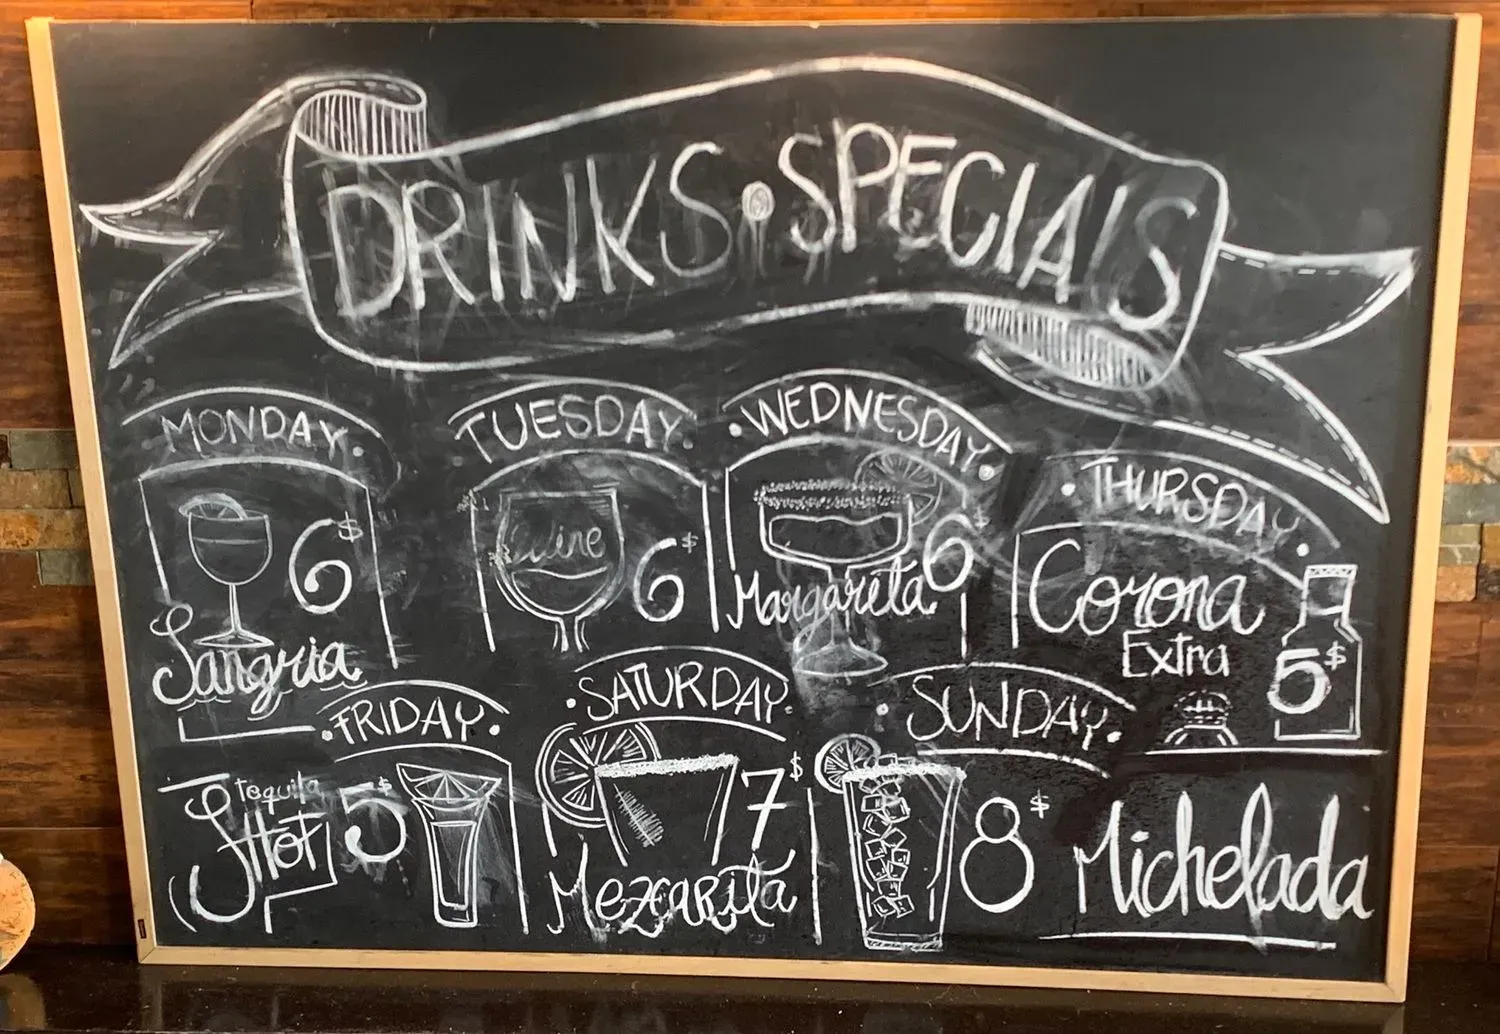 DRINKS • SPECIALS
MONDAY
6$
Sangria
TUESDAY
Wine
6$
WEDNESDAY
6$
Margareta
THURSDAY
Corona
Extra
5$
FRIDAY
tequila
SHot
5$
SATURDAY
7$
Mezcarita
SUNDAY
8$
Michelada